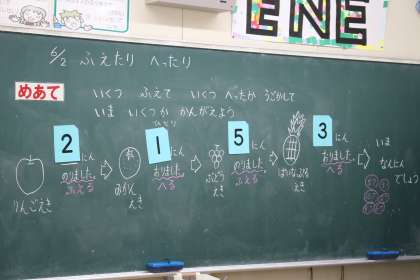 ENE
6/2 ふえたり へったり
めあて
いくつ ふえて いくつ へったか うごかして
いま いくつか かんがえよう
2にん のりました。 ふえる
ひとり
1 おりました。 へる
5にん のりました。 ふえる
3にん おりました。 へる
いま なんにん でしょう
りんごえき
みかん えき
ぶどう えき
ぱいなっぷる えき